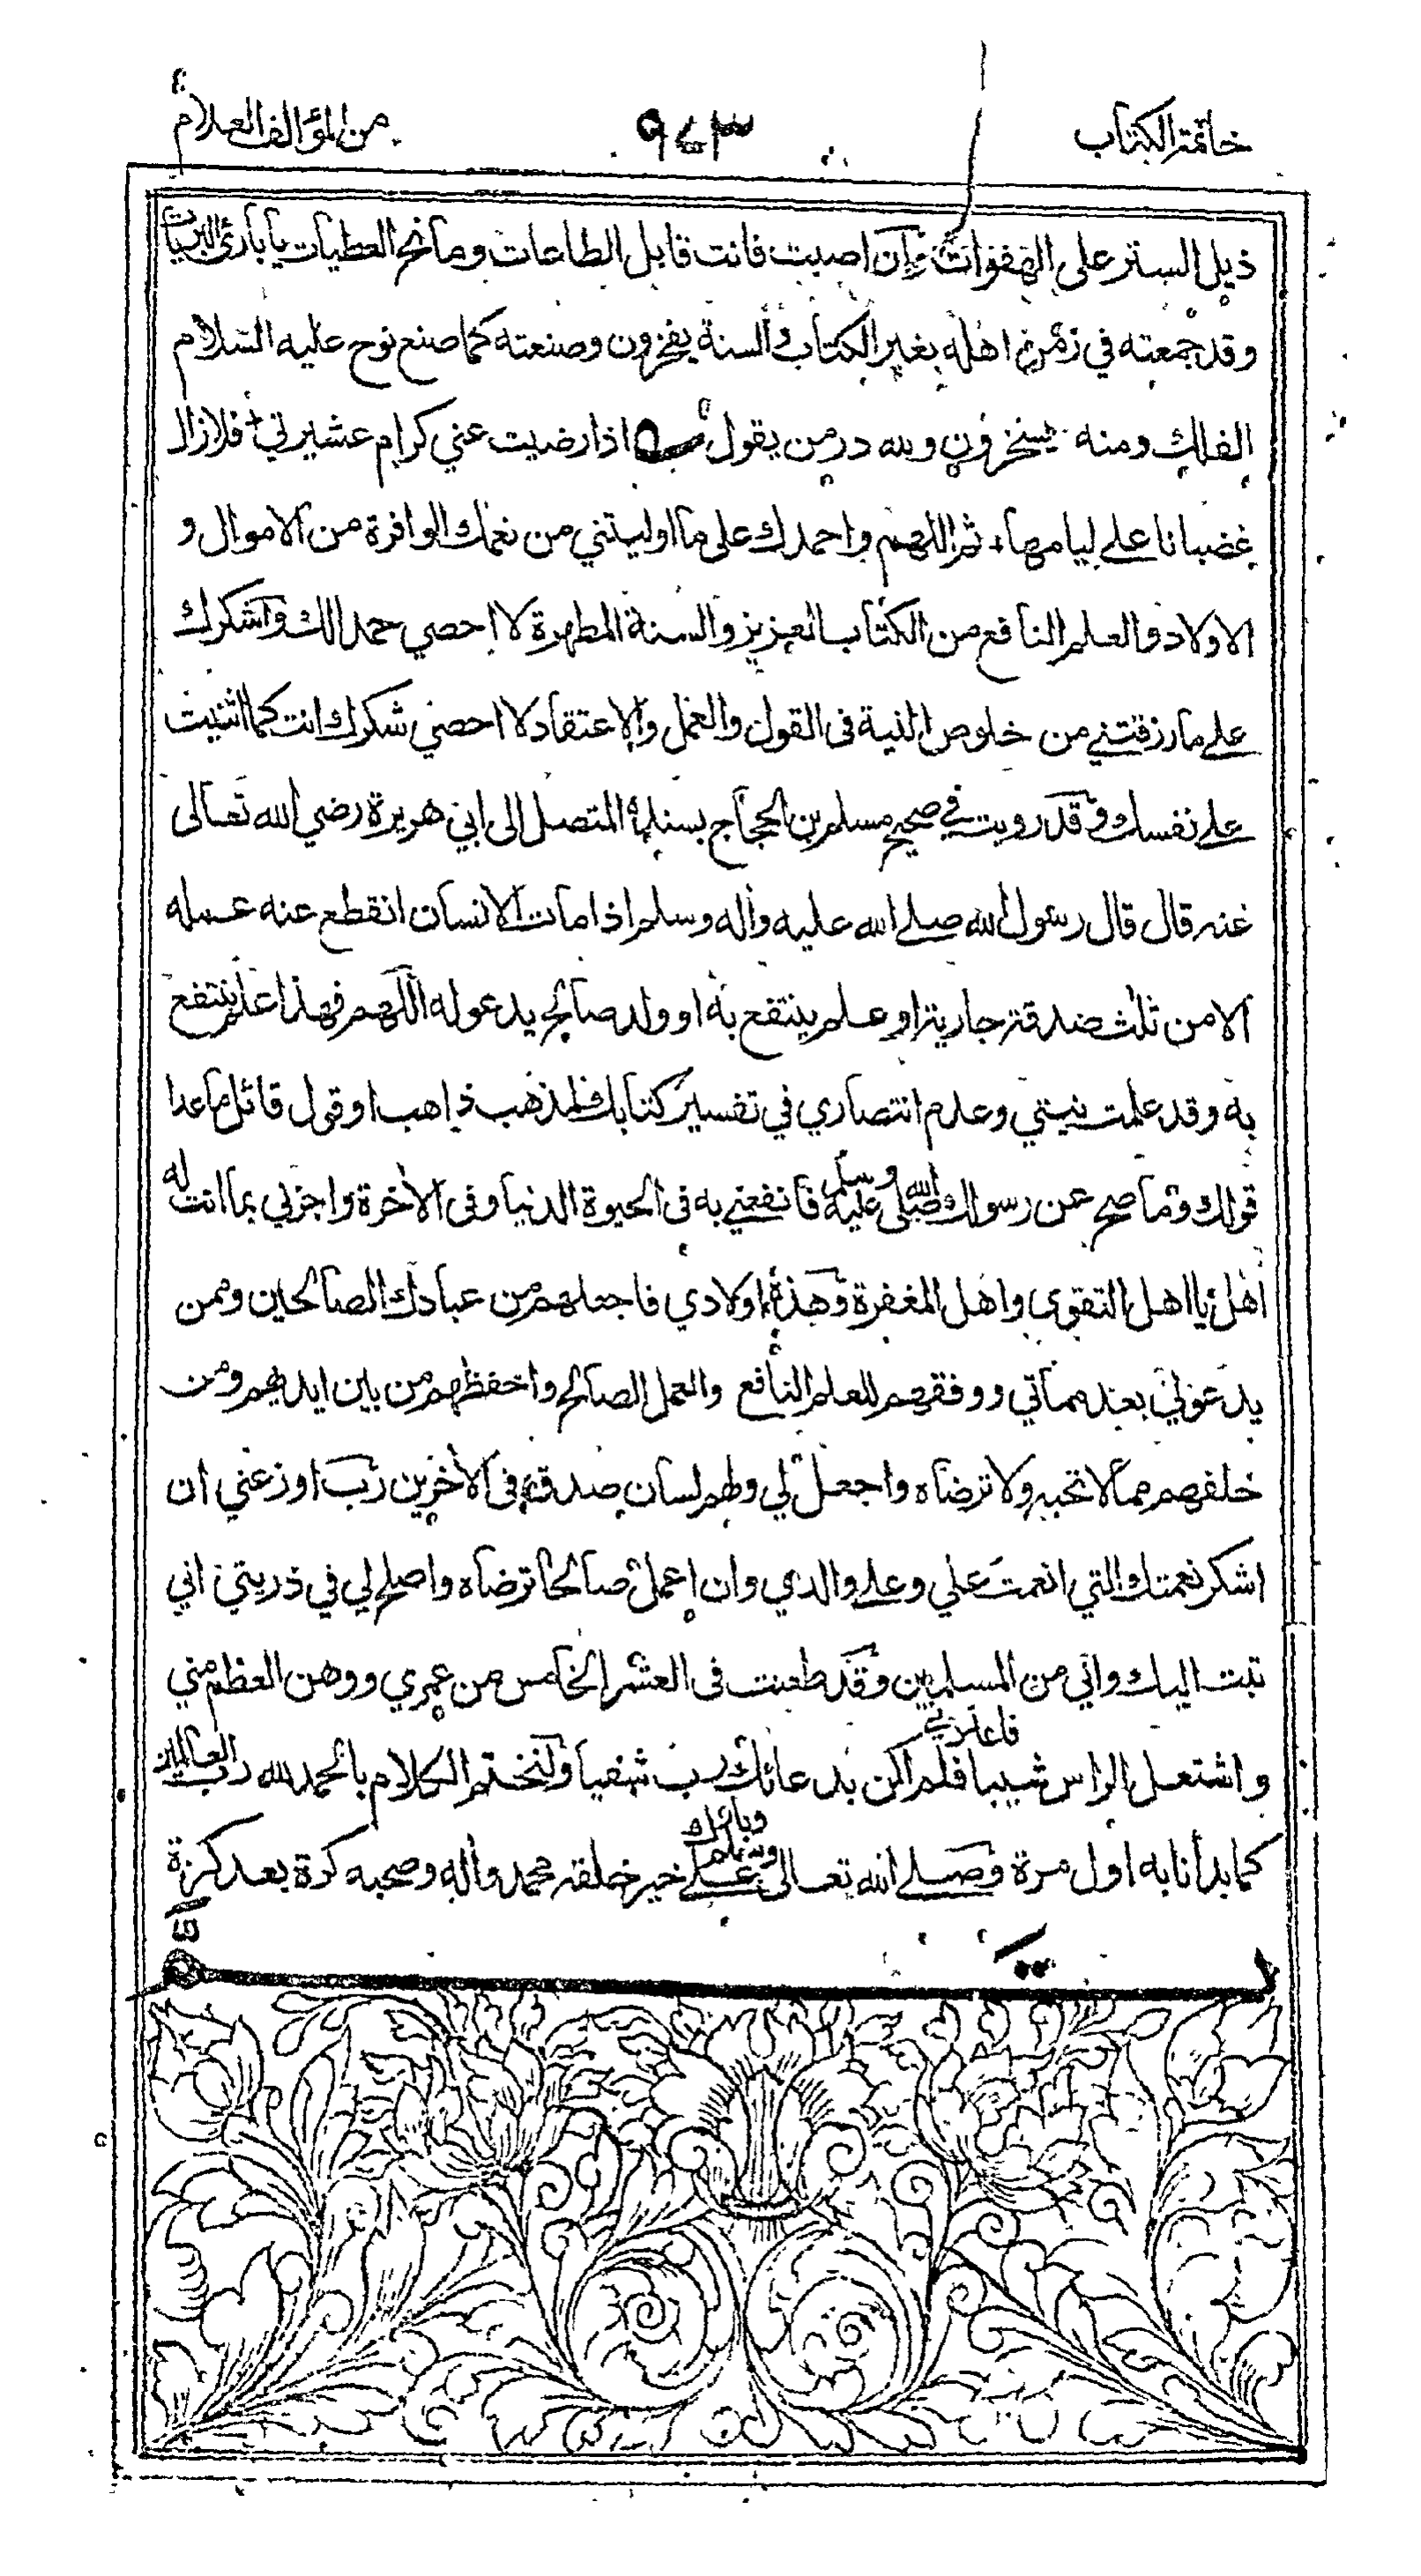 خاتمة الكتاب ٩٧٣ من المؤلف العلام
ذيل الستر على الهفوات وان اصبت فانت قابل الطاعات ومانح العطيات يا بارئ البريات
وقد جمعته في زمن اهله بغير الكتاب والسنة يفخرون وصنعته كما صنع نوح عليه السلام
الفلك ومنه يسخرون ولله در من يقول اذا رضيت عني كرام عشيرتي فلا زال
غضبانا علي ليامها ثم اللهم واحمدك على ما اوليتني من نعمك الوافرة من الاموال و
الاولاد والعلم النافع من الكتاب العزيز والسنة المطهرة لا احصي حمدا لك واشكرك
علے ما رزقتني من خلوص النية فى القول والعمل والاعتقاد لا احصي شكرك انت كما اثنيت
علے نفسك وقد رويت في صحيح مسلم بن الحجاج بسنده المتصل الى ابي هريرة رضي الله تعالى
عنه قال قال رسول الله صلے الله عليه وآله وسلم اذا مات الانسان انقطع عنه عمله
الا من ثلث صدقة جارية او علم ينتفع به او ولد صالح يدعو له اللهم فهذا علم ينتفع
به وقد علمت نيتي وعدم انتصاري في تفسير كتابك لمذهب ذاهب او قول قائل ما عدا
قولك وما صح عن رسولك صلى الله عليه وسلم فانفعني به فى الحيوة الدنيا وفى الآخرة واجزني بما انت له
اهل يا اهل التقوى واهل المغفرة وهذه اولادي فاجعلهم من عبادك الصالحين وممن
يدعو لي بعد مماتي ووفقهم للعلم النافع والعمل الصالح واحفظهم من بين ايديهم ومن
خلفهم مما لا تحبه ولا ترضاه واجعل لي ولهم لسان صدق فى الآخرين رب اوزعني ان
اشكر نعمتك التي انعمت علي وعلے والدي وان اعمل صالحا ترضاه واصلح لي في ذريتي اني
تبت اليك واني من المسلمين وقد طعنت فى العشر الخامس من عمري ووهن العظم مني
واشتعل الراس شيبا فلم اكن بدعائك رب شقيا ولنختم الكلام بالحمد لله رب العالمين
كما بدأنا به اول مرة وصلے الله تعالى وبارك وسلم علے خير خلقه محمد وآله وصحبه كرة بعد كرة